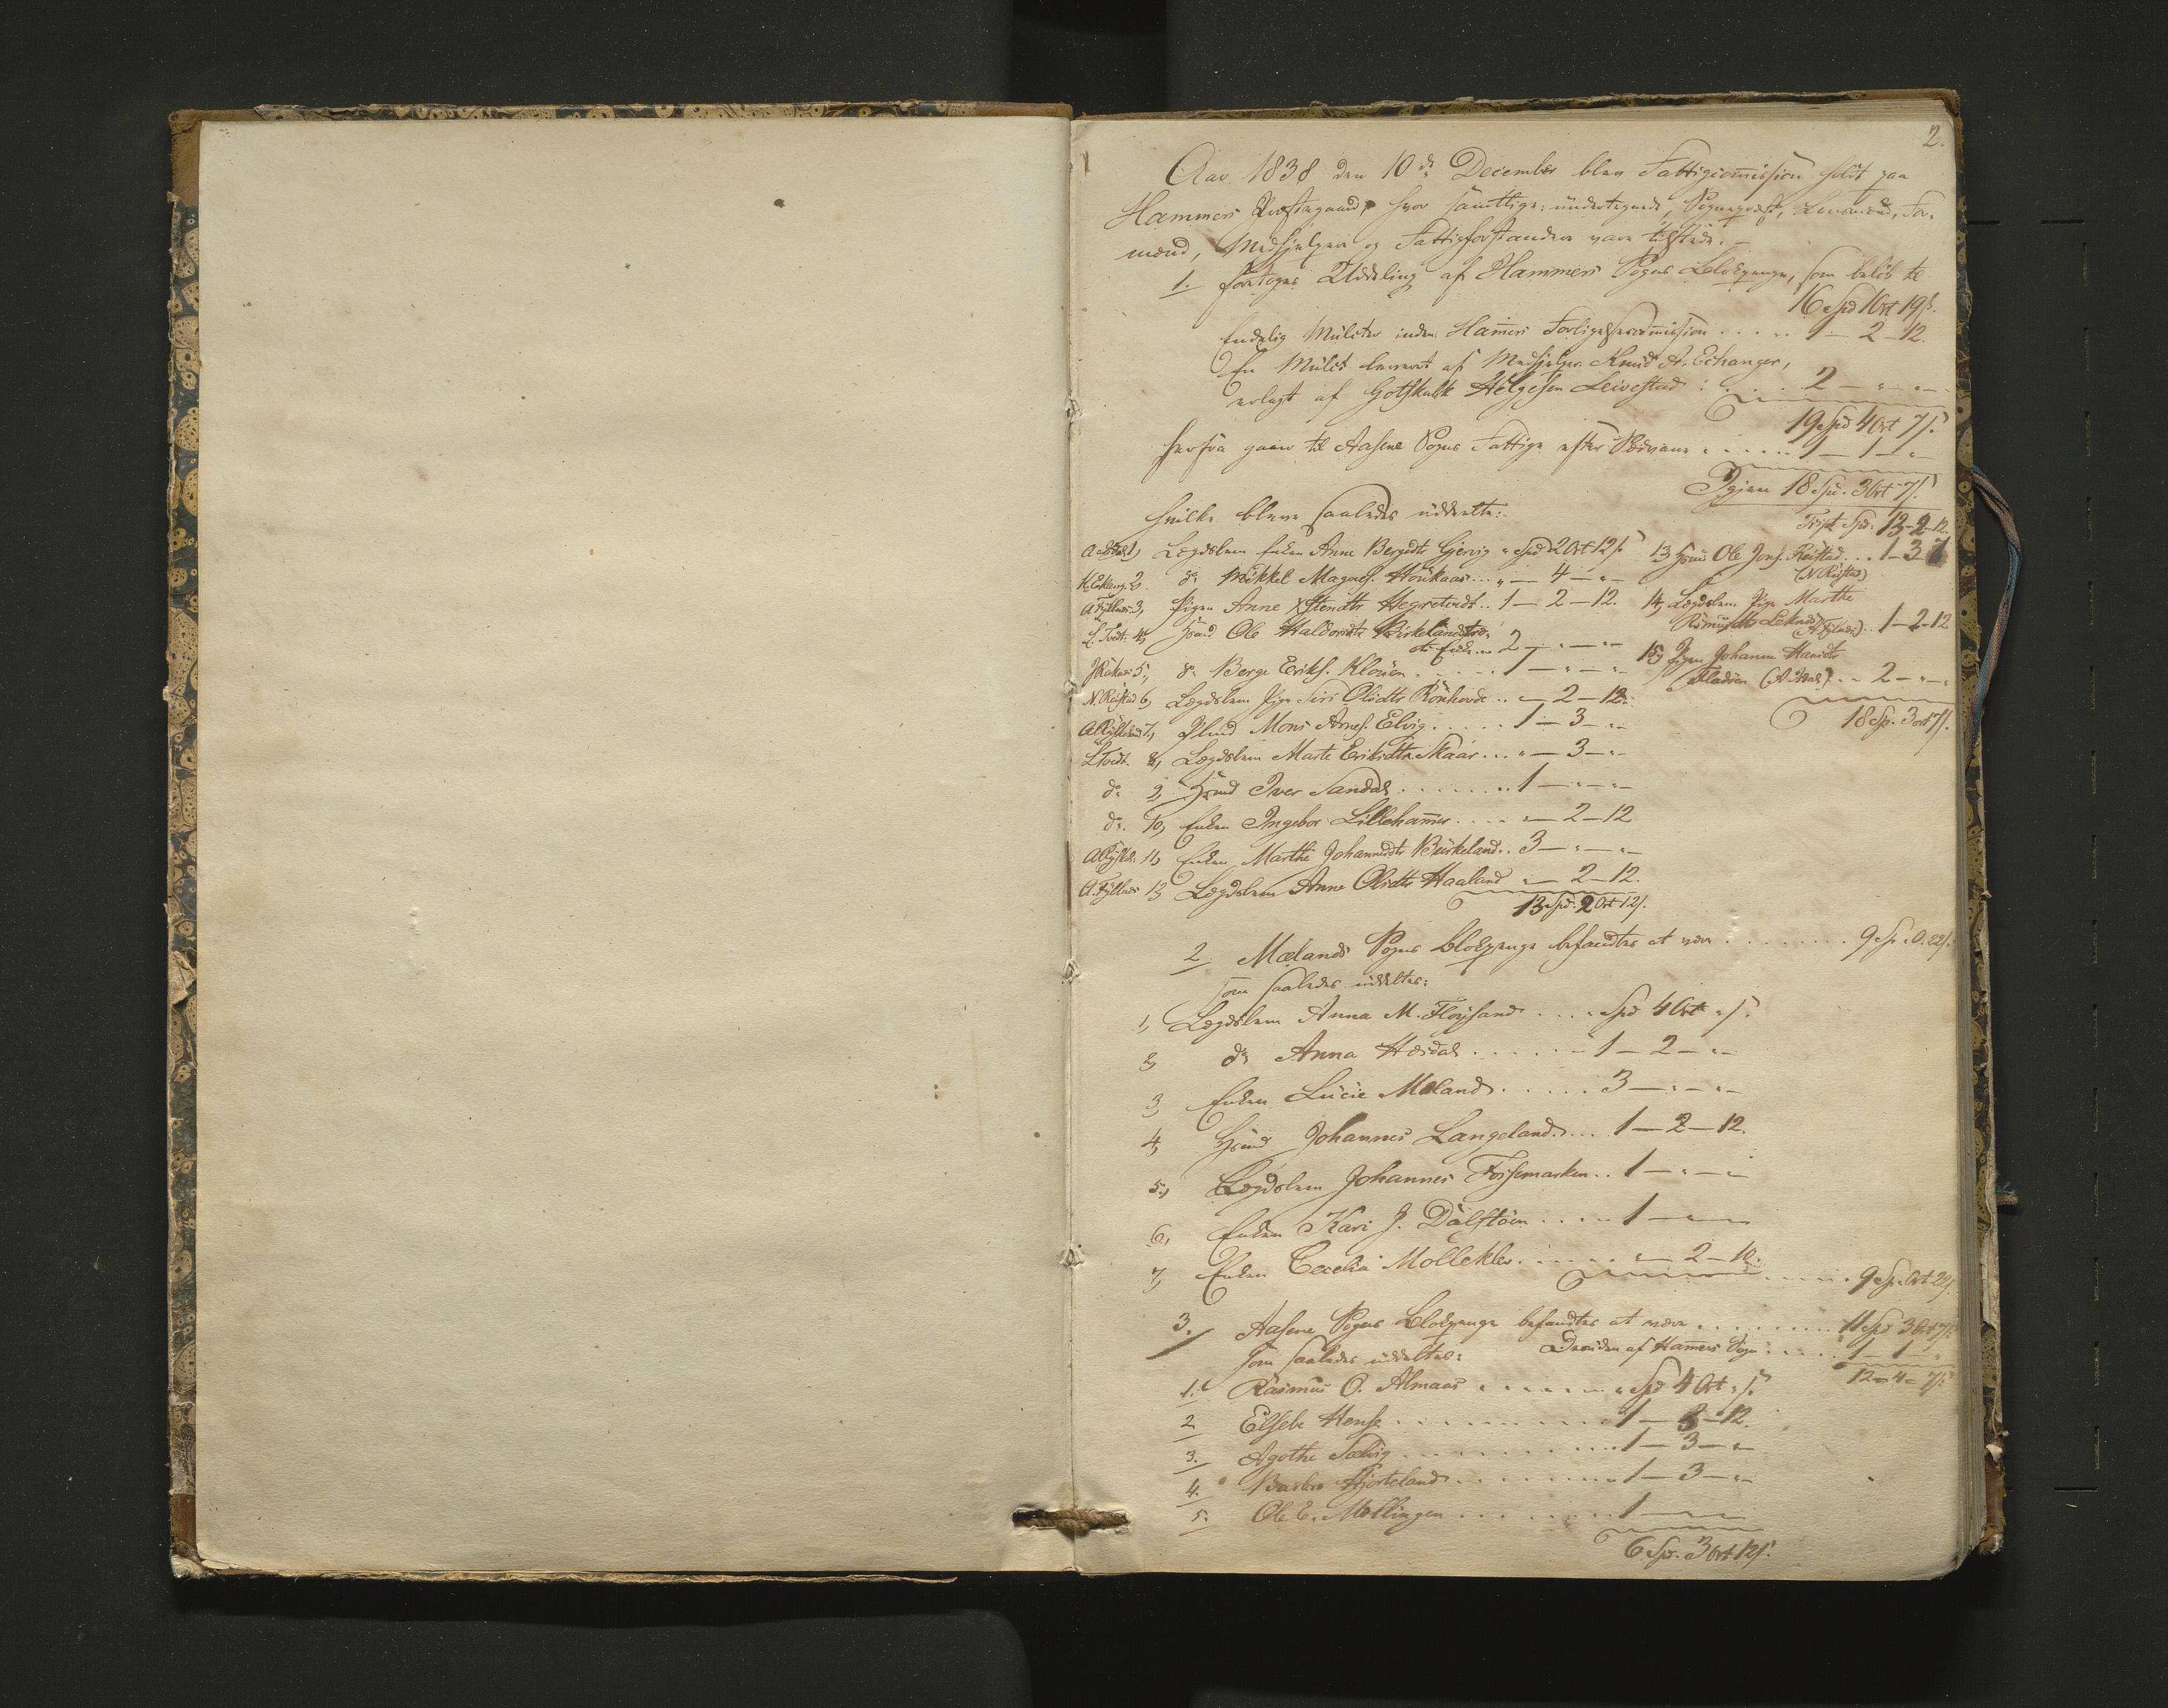 2.
Aar 1838 den 10de December blev Fattigcommission holdt paa
Hammers Præstegaard, hvor samtlige undertegnede, Sognepræst, Lensmænd, For-
mænd, Medhjelpere og Fattigforstandere vare tilstede. -
1. foretoges Uddeling af Hammers Sogns Blokpenge, som beløb til
16 Spd 1 Ort 19 s.
Endelig Mulcter inden Hamers Forligelsescommission . . . . . 1 - 2 - 12.
En Mulct leveret af Medhjelper Knud A. Echanger,
erlagt af Gotskalk Helgesen Leivestad : . . . . 2 - " - " -
19 Spd 4 Ort 7 s.
herfra gaaer til Aasene Sogns Fattige efter Sædvane . . . . . . 1 - 1 - "
Igjen 18 Spd. 3 Ort 7 s.
hvilke bleve saaledes uddeelte:
Trspt Spd. 13 - 2 - 12.
1, Lægdslem Enken Anne Bergedtr Gjervig " Spd 2 Ort 12 s.
K. Echang. 2, do Mikkel Magnes. Houkaas . . . " - 4 - " -
A Fyllnæs 3, Pigen Anne Stendtr Hegretvedt . . 1 - 2 - 12.
L. Tvedt. 4, Huusmd Ole Haldorsdtr Birkelandstræ:
ots Enke . . 2 - " - " -
5, do Berge Eriks. Klouen . . . . . . 1 - " - " -
N. Røistad 6, Lægdslem Pige Siri Olsdtr Rønhovde . . " - 2 - 12.
7, Blind Mons Arnes. Elvig . . . . . 1 - 3 - " -
L Tvedt. 8, Lægdslem Marte Eriksdtr Skaar . . . " - 3 - " -
do 9, Huusmd Iver Sandal . . . . . . . . 1 - " - " -
do. 10, Enken Ingebor Lillehamer . . . . " - 2 - 12
11, Enken Marthe Johannesdtr Birkeland . . 3 - " - " -
A. Fyllnæs 13 Lægdslem Anne Olsdtr Haaland " - 2 - 12.
13 Spd. 2 Ort 12 s.
13, Huusmd Ole Jons. Røistad . . . 1 - 3 - 7
(N Røistad)
14, Lægdslem Pige Marthe
Rasmusdtr Leknæs (A Fyllnæs) . . 1 - 2 - 12
15, Pigen Johanne Hansdtr
Fladøen . . . 2 - " - "
18 Sp. 3 ort 7 s.
2 Mælands Sogns Blokpenge befandtes at være . . . . . . . . . 9 Sp. 0. 22 s.
som saaledes uddeltes:
1, Lægdslem Anna M. Fløysand . . . " Spd 4 Ort " s.
2, do Anna Hosdal . . . . . . - 1 - 2 - " -
3, Enken Lucie Mæland . . . . . . 3 - " - " -
4, Huusmd Johannes Langeland . . . 1 - 2 - 12.
5, Lægdslem Johannes Fossemarken . . 1 - " - "
6, Enken Kari J. Dalstøen . . . . . 1 - " - "
7, Enken Cecelia Molleklev . . . . . " - 2 - 10.
9 Sp. " Ort 22 s.
3. Aasene Sogns Blokpenge befandtes at være . . . . . . . . . 11 Spd 3 Ort 7 s.
som saaledes uddeltes: Desuden af Hamers Sogn . . . . . 1 - 1 - "
12 - 4 - 7 s.
1. Rasmus O. Almaas . . . . . . . " Spd 4 Ort " s.
2 Elsebe Hense . . . . . . . . . . 1 - 3 - 12.
3. Agothe Sælvig . . . . . . . . . . 1 - 3 - " -
4. Barbro Hjorteland . . . . . . . . 1 - 3 - " -
5. Ole E. Mollingen . . . . . . . . 1 - " - "
6 Spd. 3 Ort 12 s.